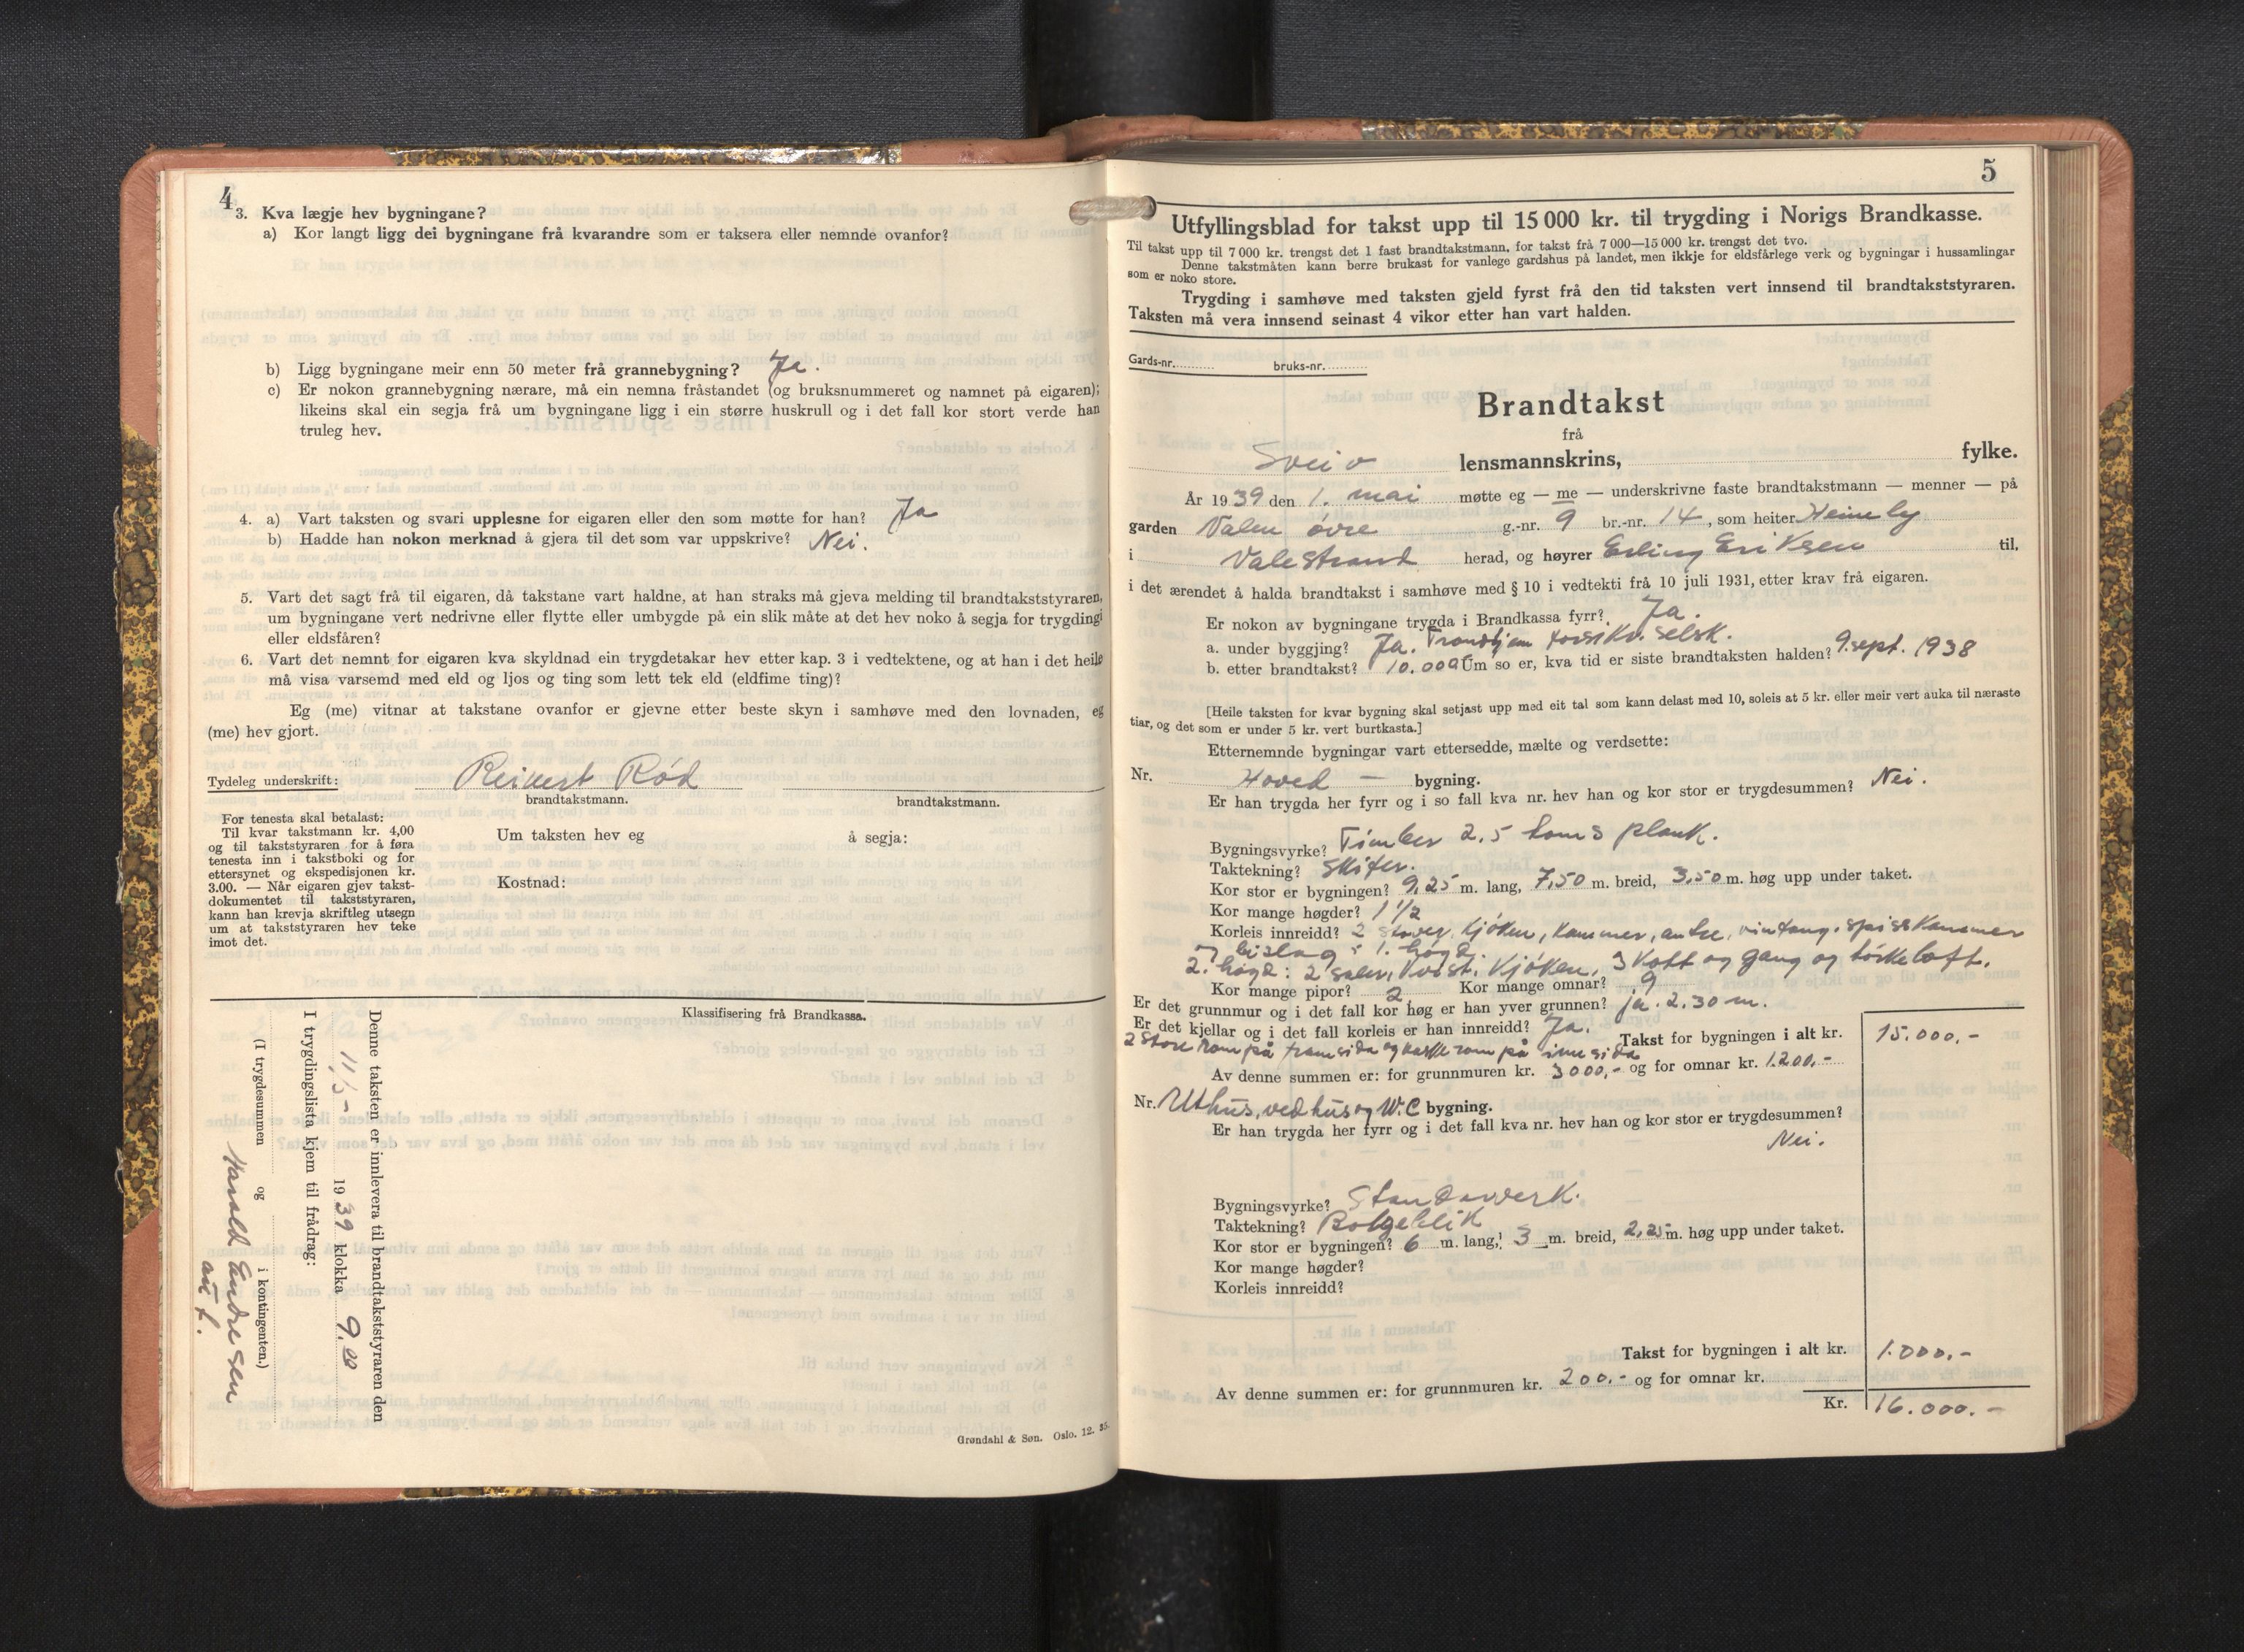 4
3. Kva lægje hev bygningane?
a) Kor langt ligg dei bygningane frå kvarandre som er taksera eller nemnde ovanfor?
b) Ligg bygningane meir enn 50 meter frå grannebygning? Ja.
c) Er nokon grannebygning nærare, må ein nemna fråstandet (og bruksnummeret og namnet på eigaren);
likeins skal ein segja frå um bygningane ligg i ein større huskrull og i det fall kor stort verde han
truleg hev.
4. a) Vart taksten og svari upplesne for eigaren eller den som møtte for han? Ja
b) Hadde han nokon merknad å gjera til det som var uppskrive? Nei.
5. Vart det sagt frå til eigaren, då takstane vart haldne, at han straks må gjeva melding til brandtakststyraren,
um bygningane vert nedrivne eller flytte eller umbygde på ein slik måte at det hev noko å segja for trygdingi
eller eldsfåren?
6. Vart det nemnt for eigaren kva skyldnad ein trygdetakar hev etter kap. 3 i vedtektene, og at han i det heile
må visa varsemd med eld og ljos og ting som lett tek eld (eldfime ting)?
Eg (me) vitnar at takstane ovanfor er gjevne etter beste skyn i samhøve med den lovnaden, eg
(me) hev gjort.
Tydeleg underskrift: Reinert Rød
brandtakstmann. brandtakstmann.
For tenesta skal betalast:
Til kvar takstmann kr. 4,00
og til takststyraren for å føra
tenesta inn i takstboki og for
ettersynet og ekspedisjonen kr.
3.00. — Når eigaren gjev takst-
dokumentet til takststyraren,
kann han krevja skriftleg utsegn
um at takststyraren hev teke
imot det.
Um taksten hev eg å segja:
Kostnad:
Klassifisering frå Brandkassa.
Denne taksten er innlevera til brandtakststyraren den
11/5- 1939 klokka 9.00
I trygdingslista kjem til frådrag:
(I trygdesummen og i kontingenten.)
Harald Endresen
aut.
Grøndahl & Søn. Oslo. 12. 35.
5
Utfyllingsblad for takst upp til 15 000 kr. til trygding i Norigs Brandkasse.
Til takst upp til 7 000 kr. trengst det 1 fast brandtakstmann, for takst frå 7 000—15 000 kr. trengst det tvo.
Denne takstmåten kann berre brukast for vanlege gardshus på landet, men ikkje for eldsfårlege verk og bygningar i hussamlingar
som er noko store.
Trygding i samhøve med taksten gjeld fyrst frå den tid taksten vert innsend til brandtakststyraren.
Taksten må vera innsend seinast 4 vikor etter han vart halden.
Gards-nr. bruks-nr.
Brandtakst
frå
Sveio lensmannskrins, fylke.
År 1939 den 1. mai møtte eg — me — underskrivne faste brandtakstmann — menner — på
garden Valen øvre g.-nr. 9 br.-nr. 14, som heiter Heimeby
i Valestrand herad, og høyrer Erling Eriksen til,
i det ærendet å halda brandtakst i samhøve med § 10 i vedtekti frå 10 juli 1931, etter krav frå eigaren.
Er nokon av bygningane trygda i Brandkassa fyrr? Ja.
a. under byggjing? Ja. Trondhjem selsk.
b. etter brandtakst? 10.000 Um so er, kva tid er siste brandtaksten halden? 9. sept. 1938
[Heile taksten for kvar bygning skal setjast upp med eit tal som kann delast med 10, soleis at 5 kr. eller meir vert auka til næraste
tiar, og det som er under 5 kr. vert burtkasta.]
Etternemnde bygningar vart ettersedde, mælte og verdsette:
Nr. Hoved — bygning.
Er han trygda her fyrr og i so fall kva nr. hev han og kor stor er trygdesummen? Nei.
Bygningsvyrke? Timber 2,5 toms plank.
Taktekning? Skifer.
Kor stor er bygningen? 9,25 m. lang, 7,50 m. breid, 3,50 m. høg upp under taket.
Kor mange høgder? 1 1/2
Korleis innreidd? 2 stover, kjøken, kammer, antre, vintang, spisskammer
og bislag i 1. høgd.
2. høgd: 2 kjøken, 3 kott og gang og tørkeloft.
Kor mange pipor? 2 Kor mange omnar? 9
Er det grunnmur og i det fall kor høg er han yver grunnen? ja. 2.30 m.
Er det kjellar og i det fall korleis er han innreidd? Ja. Takst for bygningen i alt kr. 15.000,-
2 store rom på framsida og rom på sida
Av denne summen er: for grunnmuren kr. 3000,- og for omnar kr. 1.200,-
Nr. Uthus, vedhus og W.C bygning.
Er han trygda her fyrr og i det fall kva nr. hev han og kor stor er trygdesummen?
Nei.
Bygningsvyrke? Standaverk.
Taktekning? Bølgeblik
Kor stor er bygningen? 6 m. lang, 3 m. breid, 2,25 m. høg upp under taket.
Kor mange høgder?
Korleis innreidd?
Takst for bygningen i alt kr. 1.000,-
Av denne summen er: for grunnmuren kr. 200,- og for omnar kr.
Kr. 16.000.-